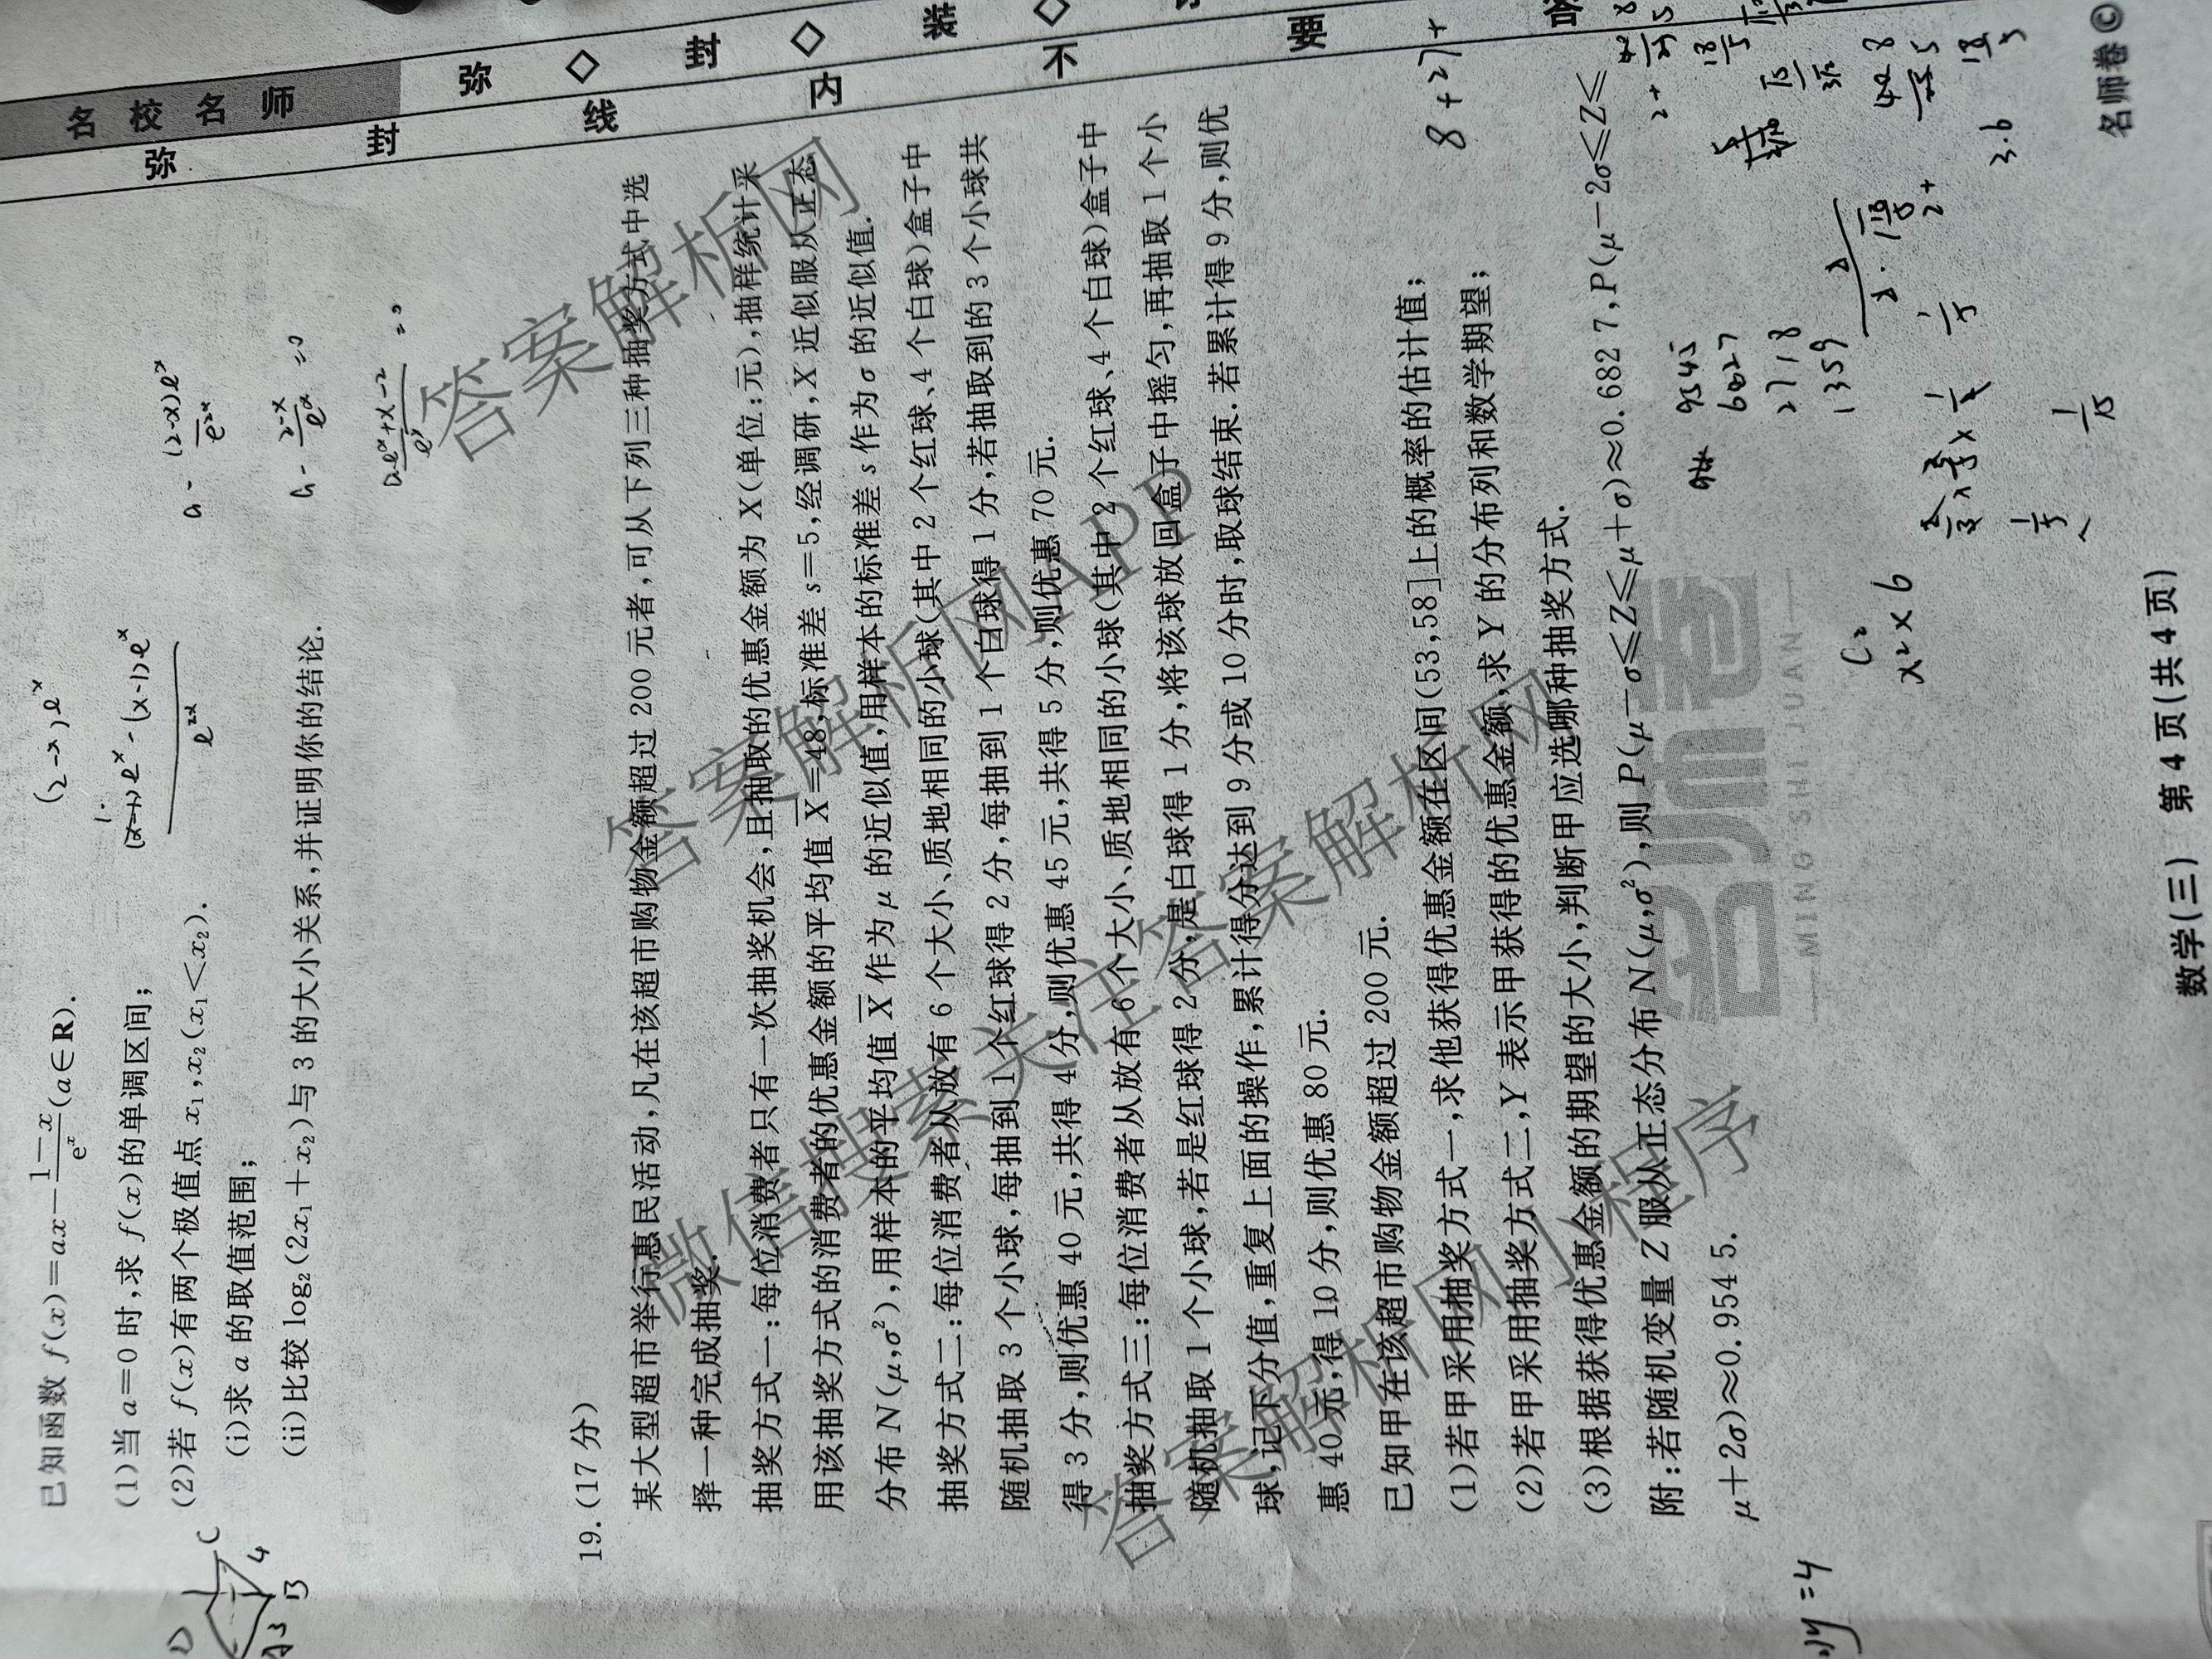 名校名师
弥 ◇ 封 ◇
弥 封 线 内 不
已知函数 f(x)=ax-\frac{1-x}{e^x}(a∈R).
(1)当 a=0 时,求 f(x)的单调区间;
(2)若 f(x)有两个极值点 x₁,x₂(x₁<x₂).
(i)求 a 的取值范围;
(ii)比较 log₂(2x₁+x₂)与 3 的大小关系,并证明你的结论.
(2-x)e^x
a-\frac{(2-x)e^x}{e^{2x}}
a-\frac{2-x}{e^x}=0
\frac{ae^x+x-2}{e^x}=0
19.(17 分)
某大型超市举行惠民活动,凡在该超市购物金额超过 200 元者,可从下列三种抽奖方式中选
择一种完成抽奖.
抽奖方式一:每位消费者只有一次抽奖机会,且抽取的优惠金额为 X(单位:元),抽样统计采
用该抽奖方式的消费者的优惠金额的平均值 X̄=48,标准差 s=5,经调研,X 近似服从正态
分布 N(μ,σ²),用样本的平均值 X̄ 作为 μ 的近似值,用样本的标准差 s 作为 σ 的近似值.
抽奖方式二:每位消费者从放有 6 个大小、质地相同的小球(其中 2 个红球、4 个白球)盒子中
随机抽取 3 个小球,每抽到 1 个红球得 2 分,每抽到 1 个白球得 1 分,若抽取到的 3 个小球共
得 3 分,则优惠 40 元,共得 4 分,则优惠 45 元,共得 5 分,则优惠 70 元.
抽奖方式三:每位消费者从放有 6 个大小、质地相同的小球(其中 2 个红球、4 个白球)盒子中
随机抽取 1 个小球,若是红球得 2 分,是白球得 1 分,将该球放回盒子中摇匀,再抽取 1 个小
球,记下分值,重复上面的操作,累计得分达到 9 分或 10 分时,取球结束.若累计得 9 分,则优
惠 40 元,得 10 分,则优惠 80 元.
已知甲在该超市购物金额超过 200 元.
(1)若甲采用抽奖方式一,求他获得优惠金额在区间(53,58]上的概率的估计值;
(2)若甲采用抽奖方式二,Y 表示甲获得的优惠金额,求 Y 的分布列和数学期望;
(3)根据获得优惠金额的期望的大小,判断甲应选哪种抽奖方式.
附:若随机变量 Z 服从正态分布 N(μ,σ²),则 P(μ-σ≤Z≤μ+σ)≈0.682 7,P(μ-2σ≤Z≤
μ+2σ)≈0.954 5.
8+27+
9545
6827
2718
1359
3.6
答案解析网
答案解析网APP
微信搜索关注答案解析网
答案解析网小程序
名师卷
MING SHI JUAN
数学(三) 第 4 页(共 4 页)
名师卷 ©